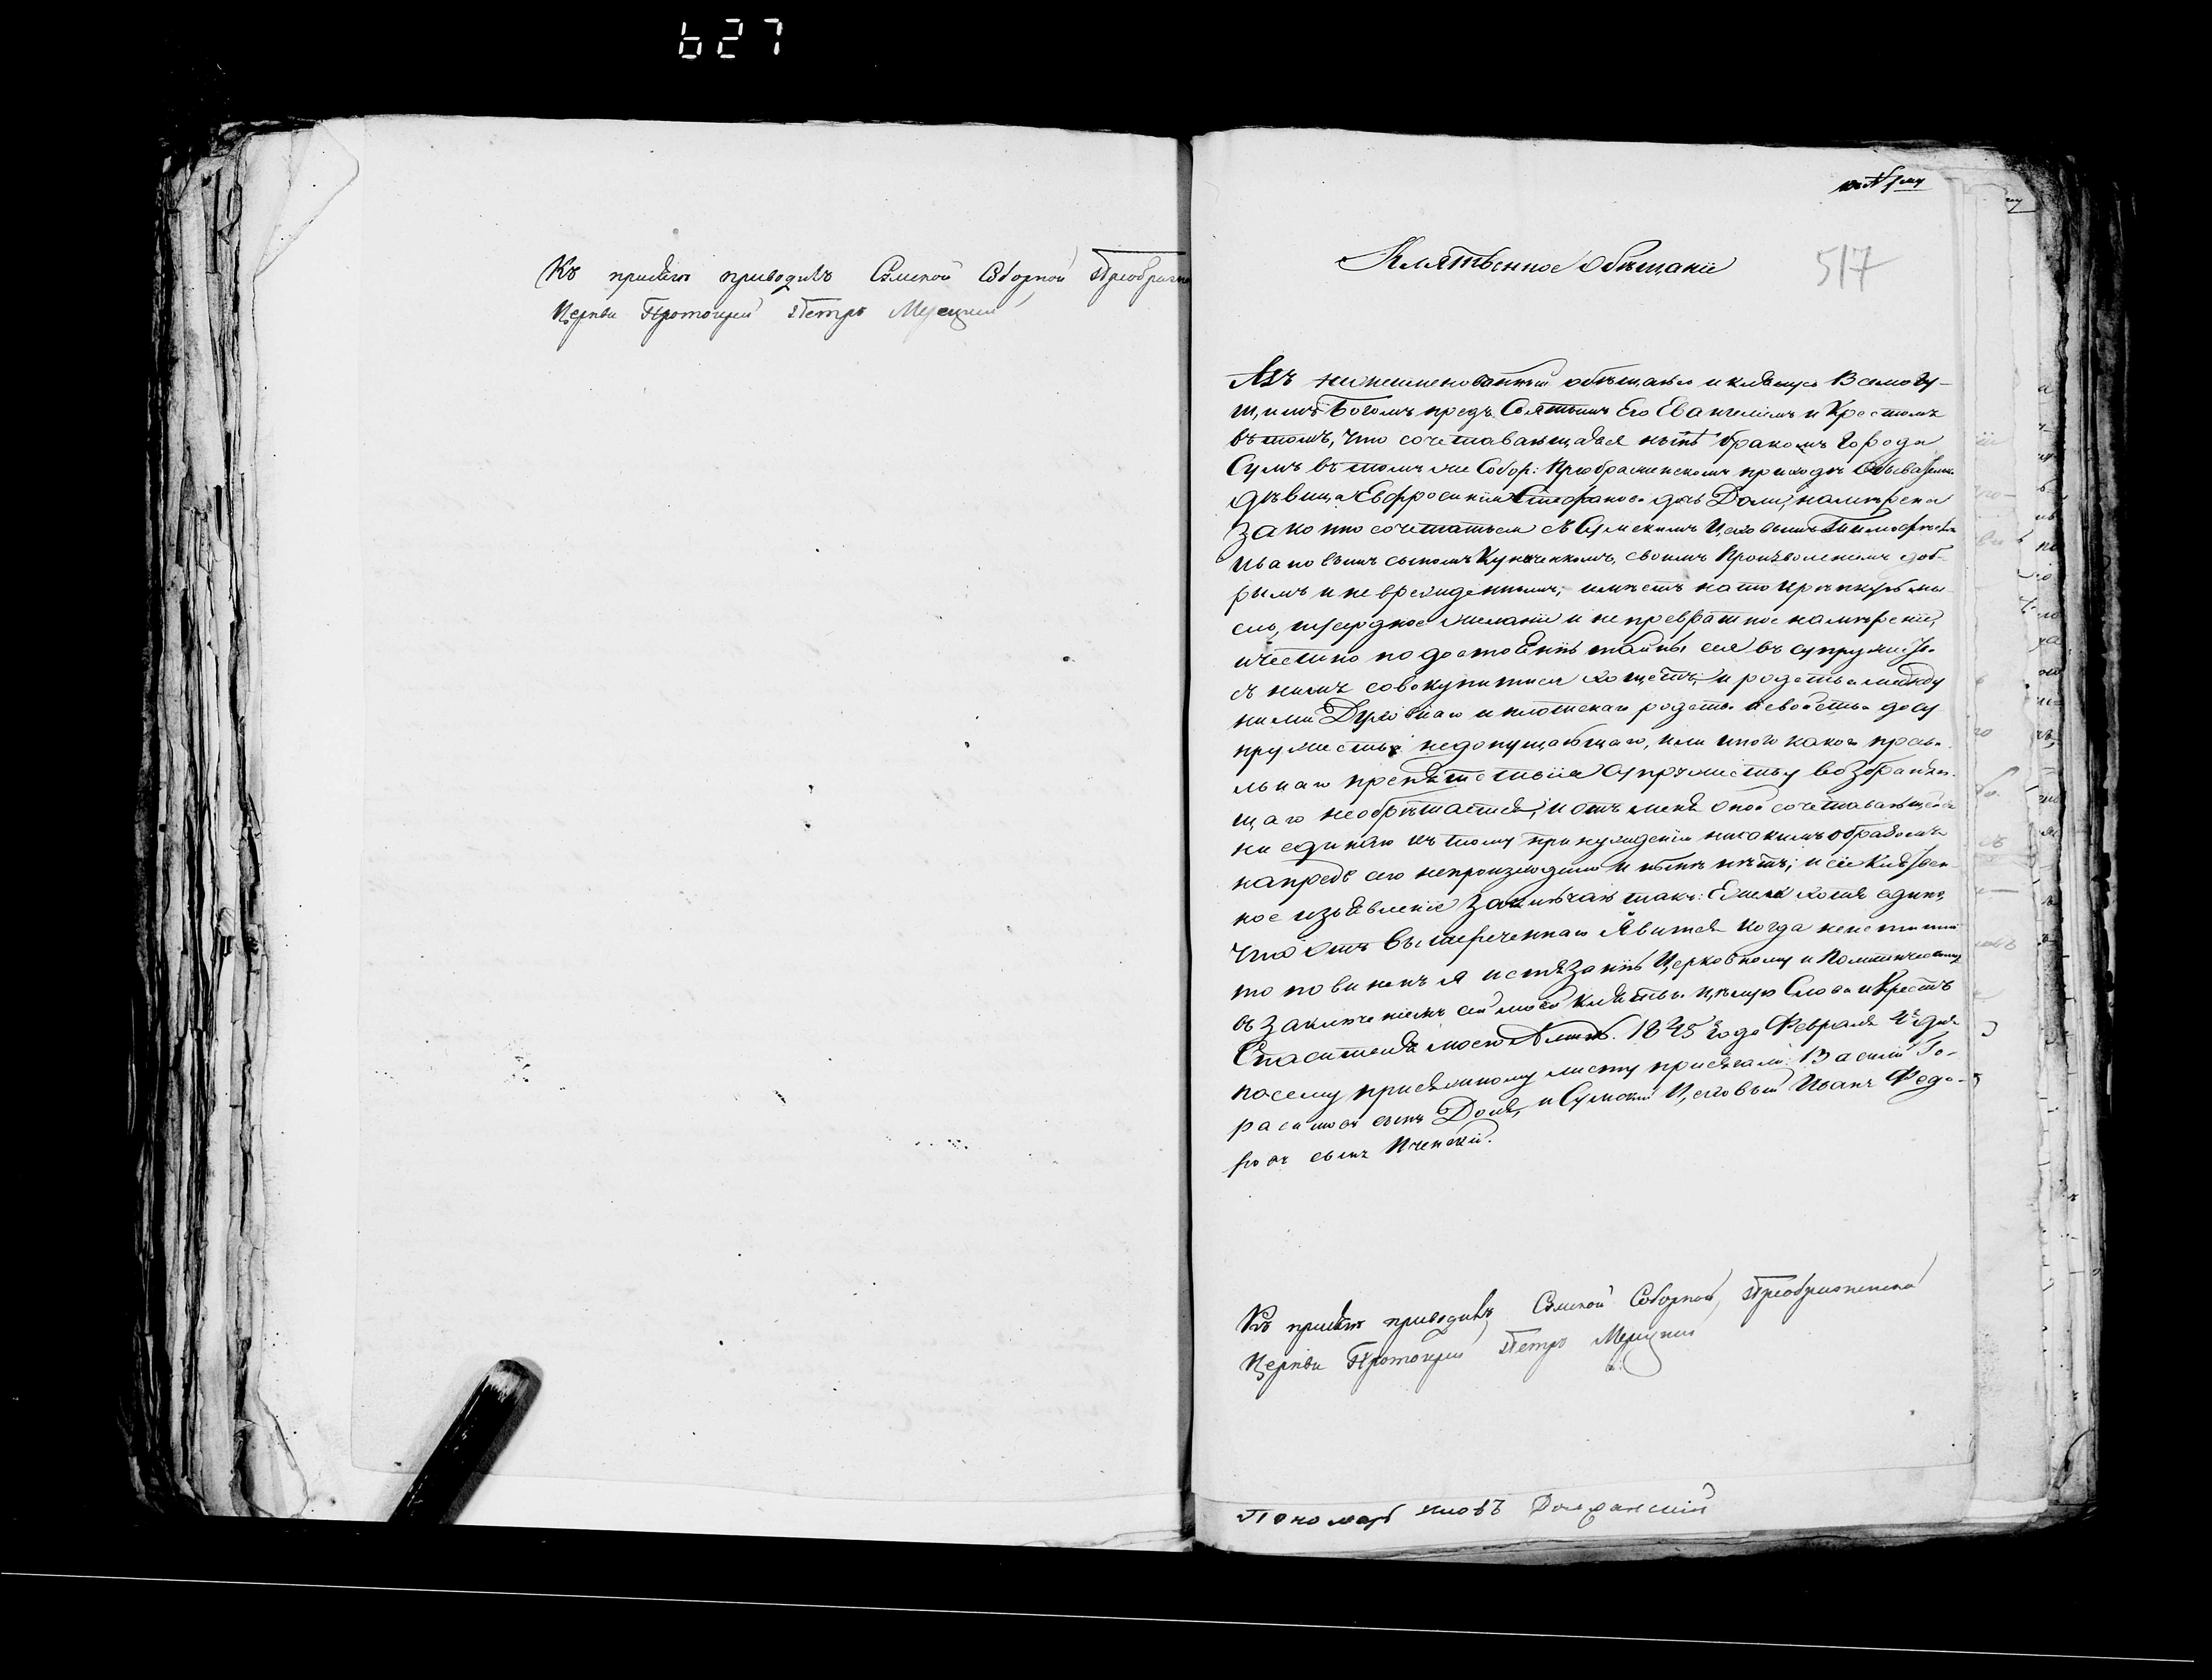 627
Къ присягѣ приводилъ Сумской Соборной Преображе
Церкви Протоіерей Петръ
517
Клятвенное обѣщаніе
Азъ нижеименованный обѣщаюся и клянуся Всемогу-
щимъ Богомъ предъ Святымъ Его Евангеліемъ и Крестомъ
въ томъ, что сочетавающаяся нынѣ бракомъ Города
Сумъ въ томъ же Собор: Преображенскомъ приходѣ
дѣвица Евфросинія Стефанова дочь намѣрена
законно сочетаться съ Сумскимъ Цеховымъ Тимофѣемъ
Ивановымъ сыномъ своимъ Произволеніемъ доб-
рымъ и непринужденнымъ, имѣетъ на то крѣпкую мы
сль, усердное желаніе и непревратное намѣреніе,
и честно по достоянію тайны сея въ супружество
съ нимъ совокупитися хощетъ, и родства между
ними Духовнаго и плотскаго родства и свойства до су
пружества недопущающаго, или иного какого прави
льнаго препятствія супружеству возбраняю
щаго необрѣтается, и отъ меня оной сочетавающейся
ни единаго къ тому принужденія никакимъ образомъ
напредь сего непроизходило и нынѣ нѣтъ; и сіе клятвен
ное изъявленіе заключаю такъ: Ежели хотя едино,
что отъ вышереченнаго Явится когда неистинно
то повиненъ я истязанію Церковному и Политическому
въ заключеніи сей моей клятвы цѣлую Слова и Крестъ
Спасителя моего Аминь. 1825 года Февраля дня
по сему присяжному листу присягали: Василій Ге-
расимовъ сынъ и Сумской Цеховый Иванъ Федо-
ровъ сынъ
Къ присягѣ приводилъ Сумской Соборной Преображенской
Церкви Протоіерей Петръ
Пономарь